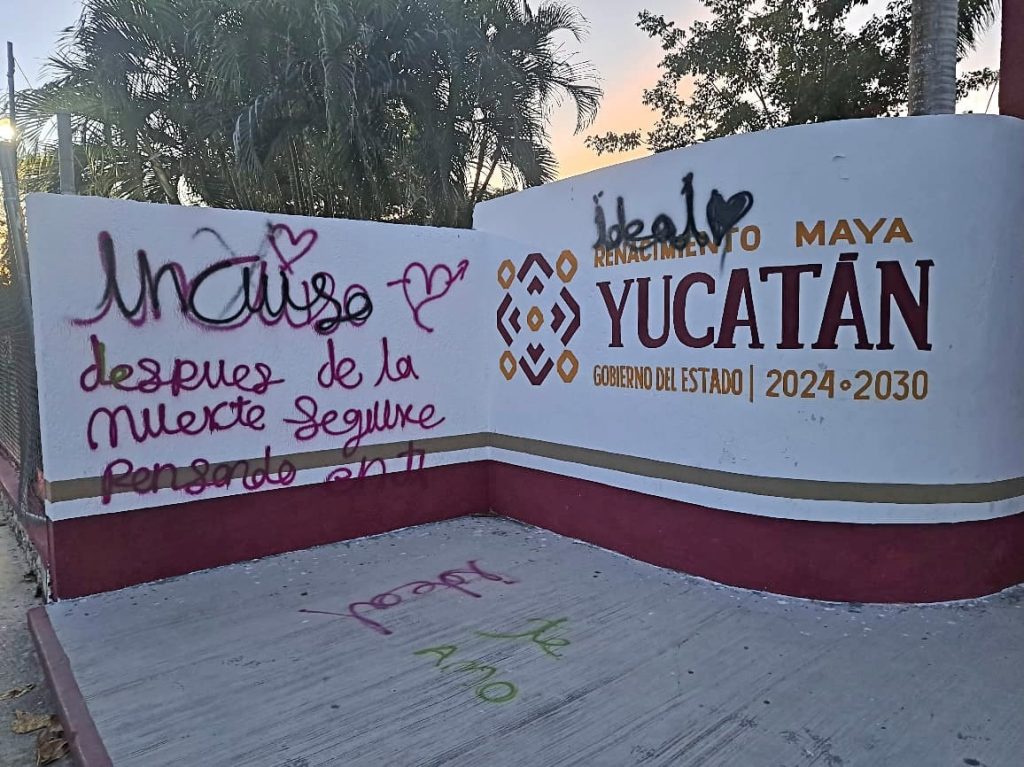 después de la
muerte seguire
Pensando en ti
ideal
RENACIMIENTO MAYA
YUCATÁN
GOBIERNO DEL ESTADO | 2024•2030
ideal
te
Amo